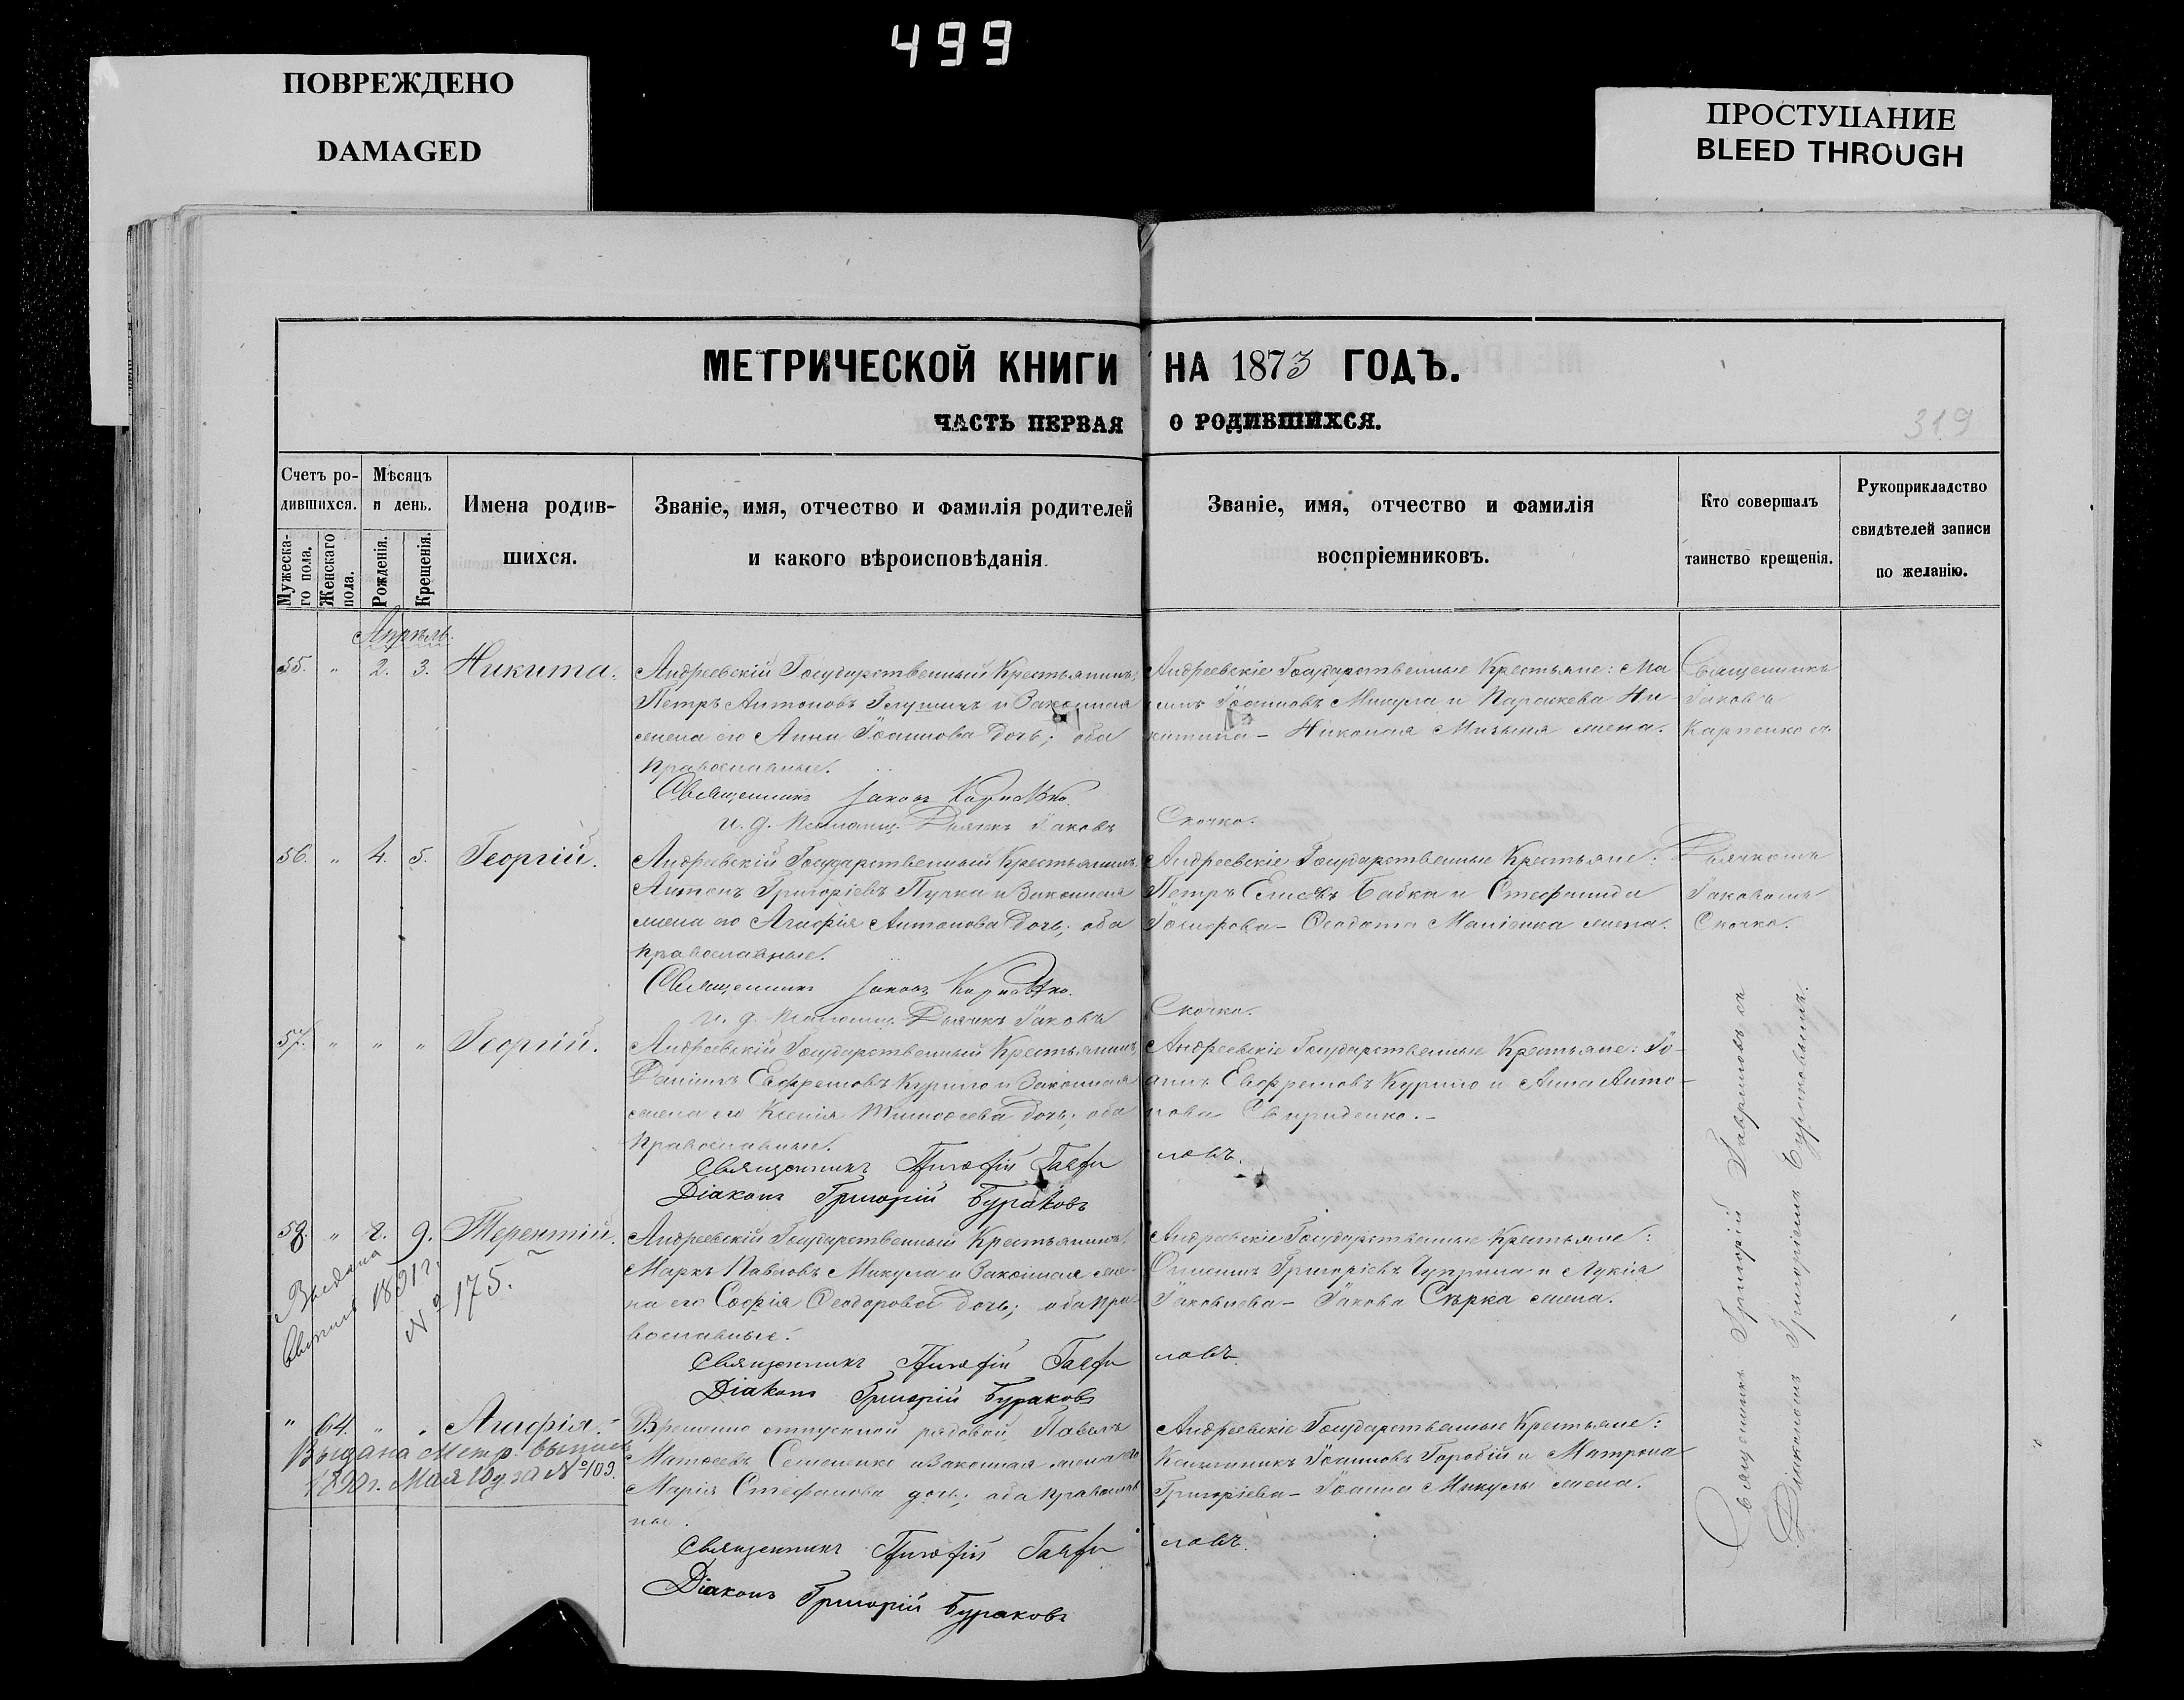 499
ПОВРЕЖДЕНО
DAMAGED
ПРОСТУПАНИЕ
BLEED THROUGH
МЕТРИЧЕСКОЙ КНИГИ НА 1873 ГОДЪ.
ЧАСТЬ ПЕРВАЯ О РОДИВШИХСЯ.
319
Счетъ ро-
дившихся.
Мужеска-
го пола.
Женскаго
пола.
Мѣсяцъ
и день.
Рожденія.
Крещенія.
Имена родив-
шихся.
Званіе, имя, отчество и фамилія родителей
и какого вѣроисповѣданія.
Званіе, имя, отчество и фамилія
воспріемниковъ.
Кто совершалъ
таинство крещенія.
Рукоприкладство
свидѣтелей записи
по желанію.
Апрѣль.
55. " 2. 3. Никита.
Андреевскій Государственный Крестьянинъ,
Петръ Антоновъ и Законная
жена его Анна Іоаннова дочь; оба
православные.
Священникъ Іаковъ Карпенко.
и. д. Псаломщ. Дьячкъ Іаковъ Скочко.
Андреевскіе Государственные Крестьяне: Ма
Іоанновъ Микула и Параскева Ни-
китина – Николая жена.
Священникъ
Іаковъ
Карпенко съ
56. " 4. 5. Георгій.
Андреевскій Государственный Крестьянинъ
Антонъ Григоріевъ Пучка и Законная
жена его Агафія Антонова дочь; оба
православные.
Священникъ Іаковъ Карпенко.
и. д. Псаломщ. Дьячкъ Іаковъ Скочко.
Андреевскіе Государственные Крестьяне:
Петръ Бабка и Стефанида
– Ѳеодота жена.
Дьячкомъ
Іаковомъ
Скочко.
57. " " " Георгій.
Андреевскій Государственный Крестьянинъ,
Даніилъ Евфремовъ Курило и Законная
жена его Ксенія Тимоѳеева дочь; оба
православные.
Священникъ Григорій Гаври ловъ.
Діаконъ Григорій Бураковъ
Андреевскіе Государственные Крестьяне: Іо-
аннъ Евфремовъ Курило и Анна Анто-
нова Свириденко. –
58. " 8. 9. Терентій.
Андреевскій Государственный Крестьянинъ,
Маркъ Павловъ Микула и Законная же-
на его Софія Ѳеодорова дочь; оба пра-
вославные.
Священникъ Григорій Гаври ловъ.
Діаконъ Григорій Бураковъ
Андреевскіе Государственные Крестьяне:
Онисимъ Григоріевъ Чуприна и Лукія
Іаковлева – Іакова Сѣрка жена.
Выдана
1891 г.
№ 175.
" 64. " " Агафія.
Временно отпускной рядовой Павелъ
Матѳеевъ Семененко и Законная жена его
Марія Стефанова дочь; оба православ
ные.
Священникъ Григорій Гаври ловъ.
Діаконъ Григорій Бураковъ
Андреевскіе Государственные Крестьяне:
Каллиникъ Іоанновъ Горобій и Матрона
Григоріева – Іоанна Микулы жена.
Выдана Метр. выпись
1890 г. Мая 10 д. за № 109.
Священникъ Григорій Гавриловъ съ
Діакономъ Григоріемъ Бураковымъ.